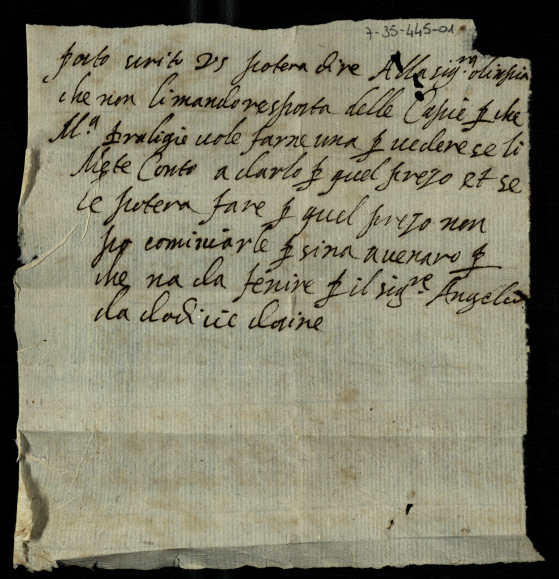 7-35-445-01
porto scrito VS potera dire Alla sig.ra olinpia
che non li mando resposta delle Casse p che
M.a p vole farne una p vedere se li
Mete Conto a darlo p quel prezo et se
le potera fare p quel prezo non
po cominciarle p sin a venaro p
che na da fenire p il sig.re Angelo
da dodice